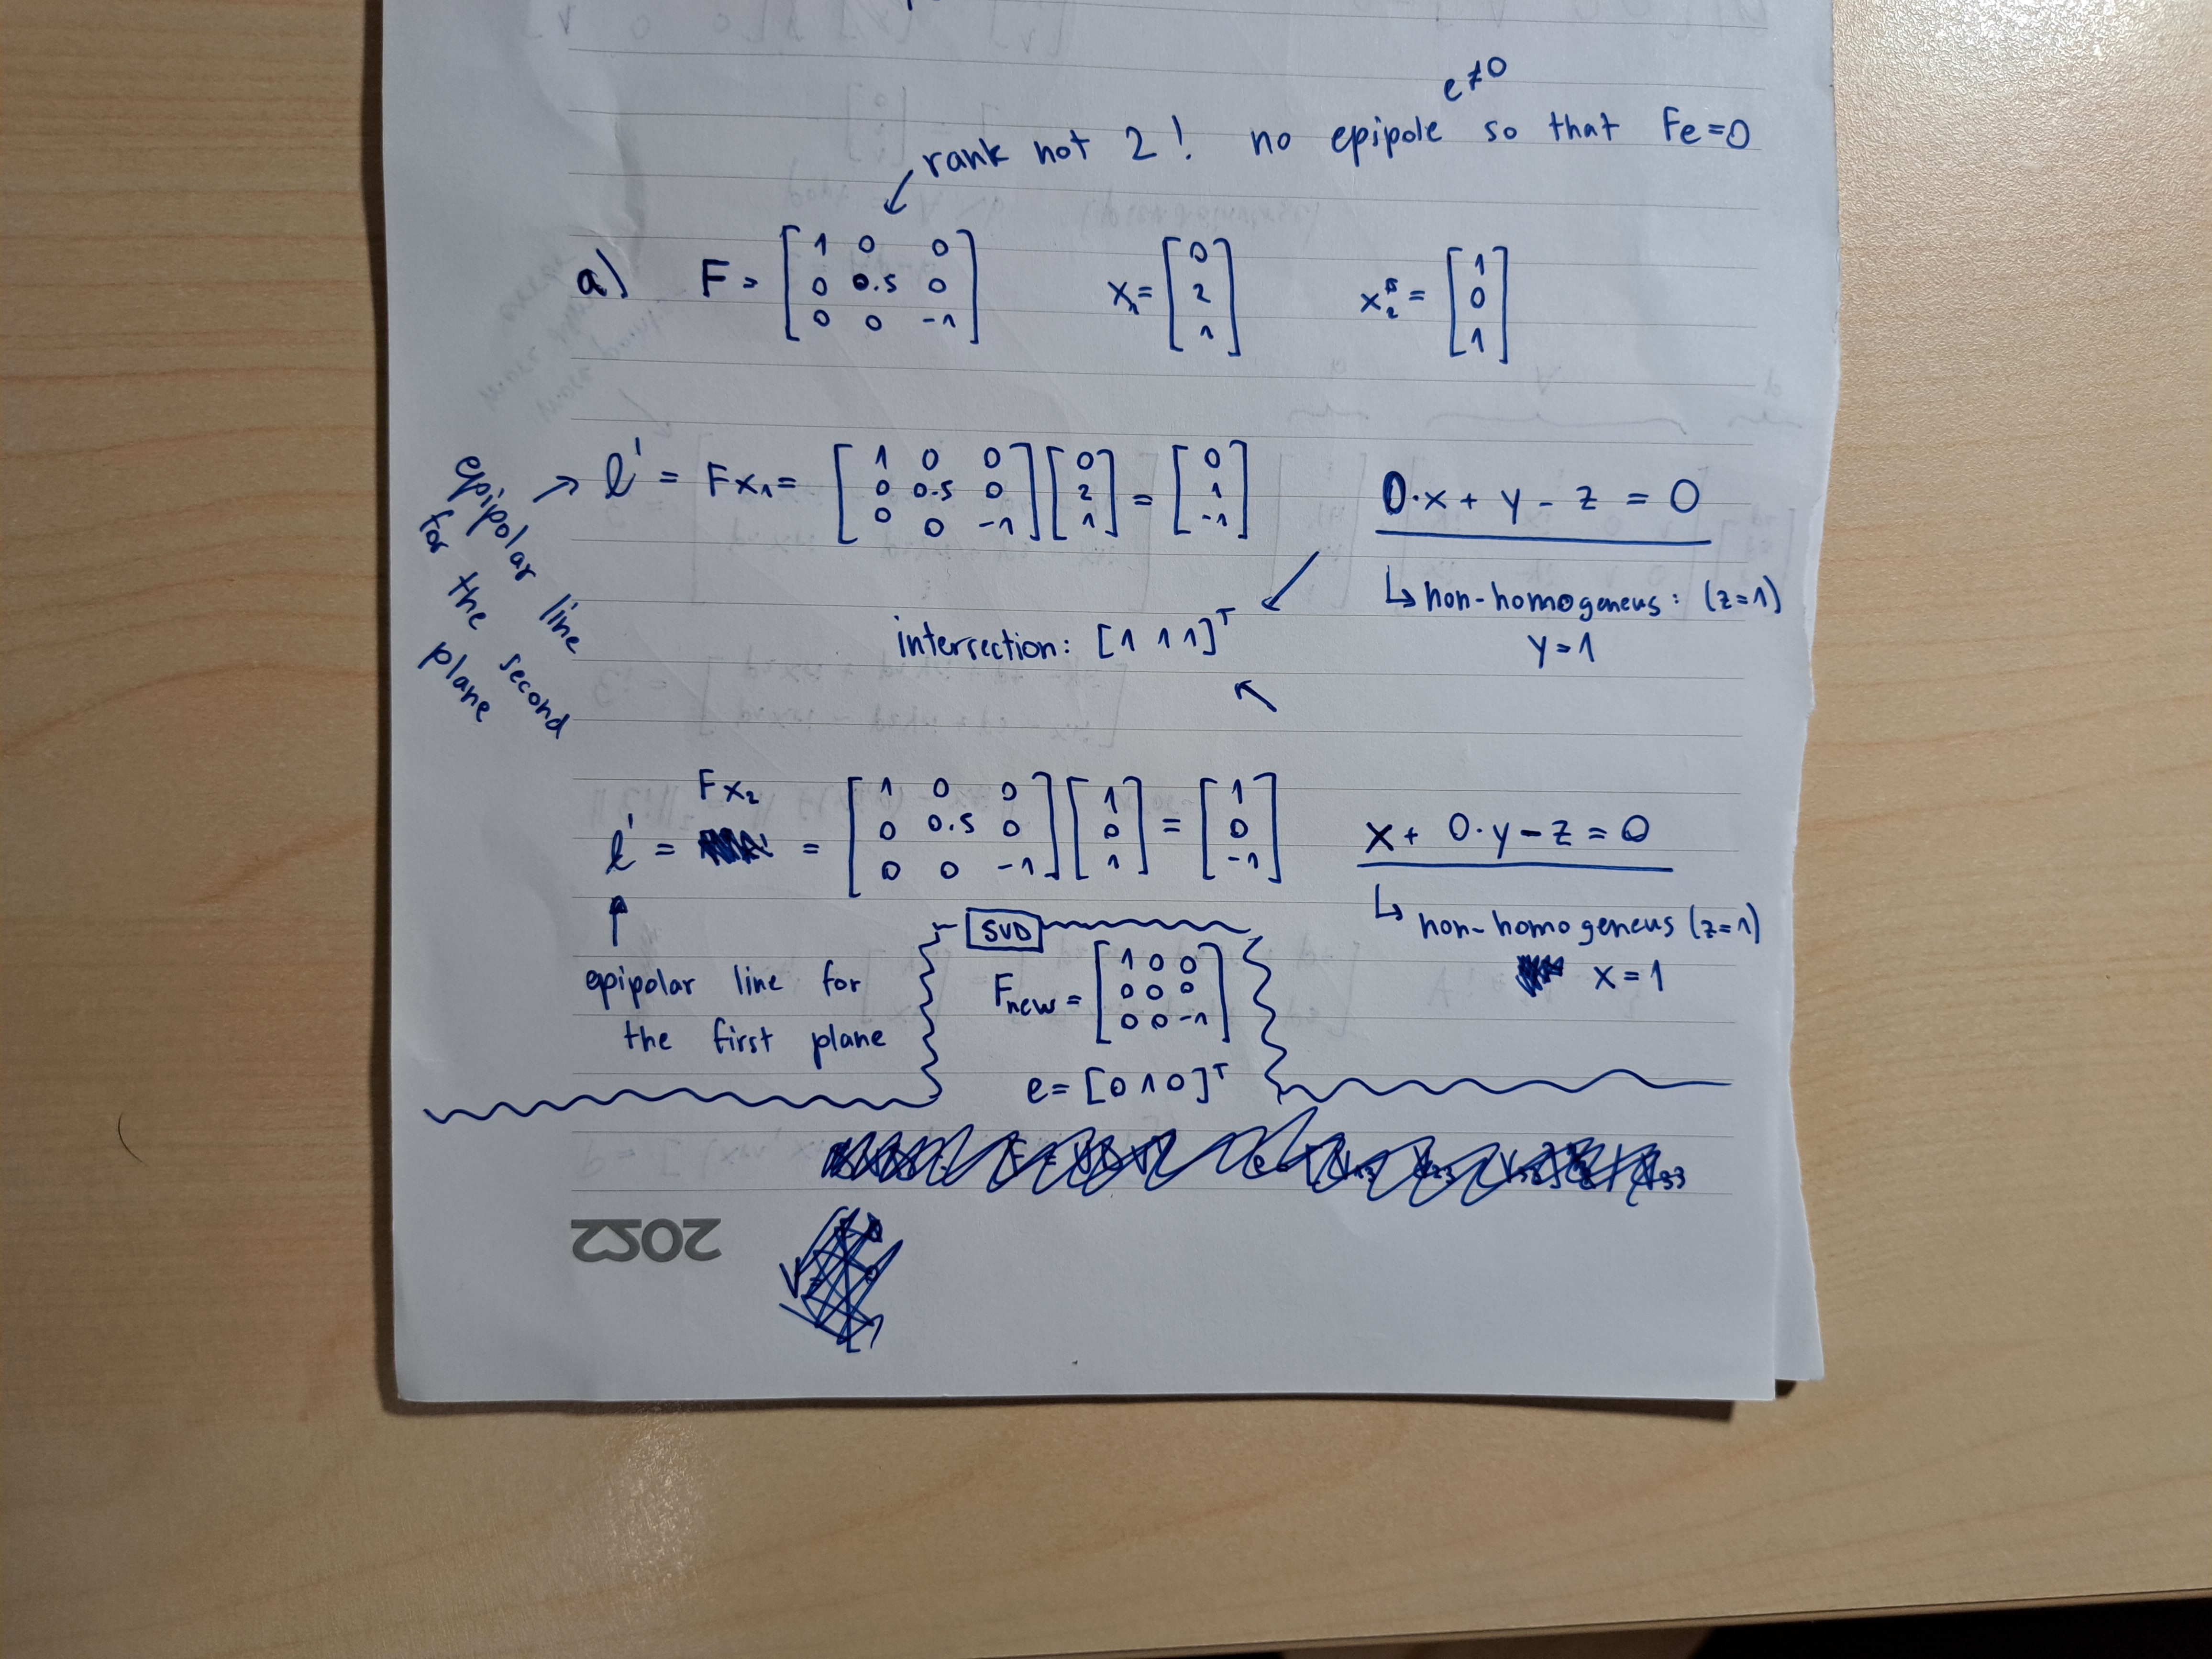 e≠0
rank not 2! no epipole so that Fe=0
a) F = [1 0 0; 0 0.5 0; 0 0 -1] x₁= [0 2 1] x₂ = [1 0 1]
epipolar line for the second plane
→ l' = Fx₁ = [1 0 0; 0 0.5 0; 0 0 -1] [0 2 1] = [0 1 -1] 0·x + y - z = 0
↳ non-homogeneus: (z=1)
intersection: [1 1 1]ᵀ y=1
Fx₂
l' = = [1 0 0; 0 0.5 0; 0 0 -1] [1 0 1] = [1 0 -1] x + 0·y - z = 0
↳ non-homogeneus (z=1)
x=1
epipolar line for
the first plane
SVD
F_new = [1 0 0; 0 0 0; 0 0 -1]
e= [0 1 0]ᵀ